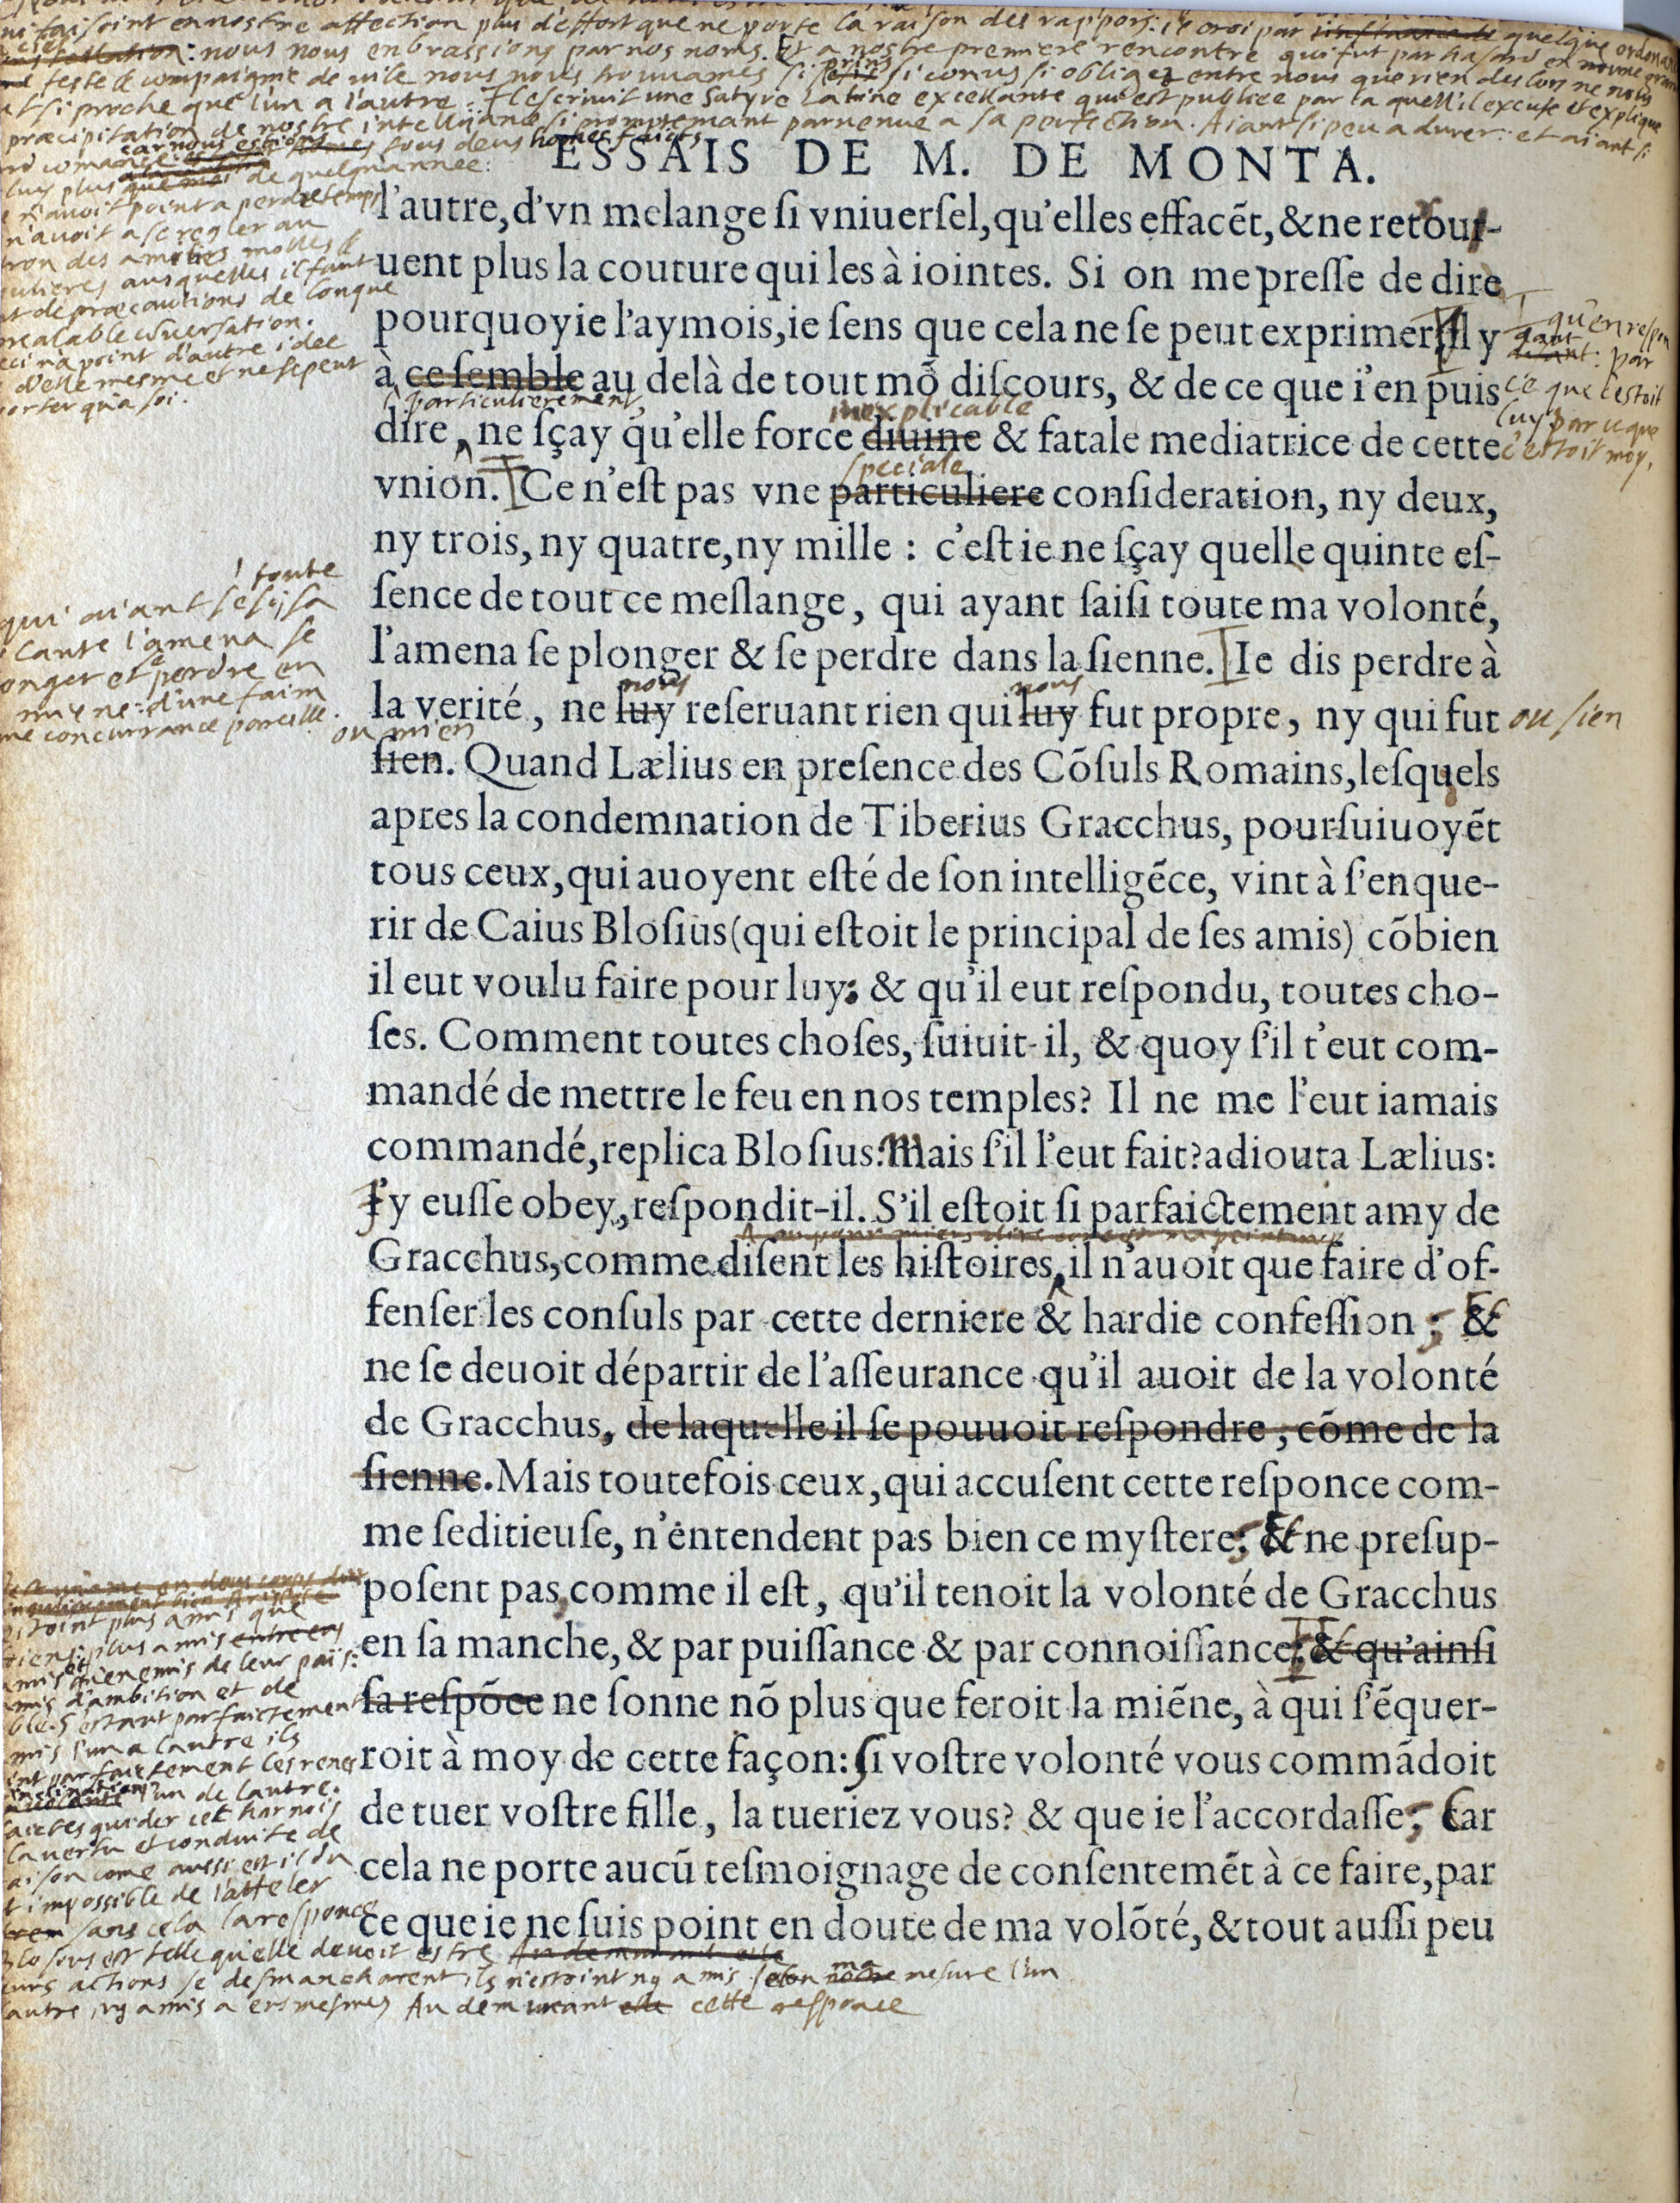 ni faisoint en nostre affection plus d'effort que ne porte la raison des rappors: ie croi par quelque ordonance
nous nous enbrassions par nos noms. Et a nostre premiere rencontre qui fut par hasard en
feste & compaignie de vile nous nous trouvames si prins si conus si obligez entre nous que rien des lors ne nous
si proche que l'un a l'autre. Il escrivit une Satyre Latine excellante qui est publiee par la quell'il excuse et explique
præcipitation de nostre intelligance si promptemant parvenue a sa perfection. Aiant si peu a durer: et aiant si
car nous estions tous deus homes faicts
luy plus de quelque annee:
n'avoit point a perdre temps
n'avoit a se regler au
des amities molles &
ausquelles il faut
de præcautions de longue
prealable conversation.
n'a point d'autre idee
d'elle mesme et ne se peut
qu'a soi.
ESSAIS DE M. DE MONTA.
l'autre, d'vn melange ſi vniuerſel, qu'elles effacẽt, & ne retou-
uent plus la couture qui les à iointes. Si on me preſſe de dire
pourquoy ie l'aymois, ie ſens que cela ne ſe peut exprimer Il y
qu'en respon
dant: par
ce que c'estoit
luy par ce que
c'estoit moy.
à ce ſemble au delà de tout mõ diſcours, & de ce que i'en puis
particulierement
inexplicable
dire, ne ſçay qu'elle force diuine & fatale mediatrice de cette
speciale
vnion. Ce n'eſt pas vne particuliere conſideration, ny deux,
ny trois, ny quatre, ny mille : c'eſt ie ne ſçay quelle quinte eſ-
ſence de tout ce meſlange, qui ayant ſaiſi toute ma volonté,
l'amena ſe plonger & ſe perdre dans la ſienne. Ie dis perdre à
toute
qui aiant sesi sa
l'amena se
et perdre en
d'une faim
concurrance pareille.
nous nous
la verité, ne luy reſeruant rien qui luy fut propre, ny qui fut
ou sien
ou mien
ſien. Quand Lælius en preſence des Cõſuls Romains, leſquels
apres la condemnation de Tiberius Gracchus, pourſuiuoyẽt
tous ceux, qui auoyent eſté de ſon intelligẽce, vint à ſ'enque-
rir de Caius Bloſius (qui eſtoit le principal de ſes amis) cõbien
il eut voulu faire pour luy: & qu'il eut reſpondu, toutes cho-
ſes. Comment toutes choſes, ſuiuit-il, & quoy ſ'il t'eut com-
mandé de mettre le feu en nos temples? Il ne me l'eut iamais
commandé, replica Bloſius: Mais ſ'il l'eut fait? adiouta Lælius:
I'y euſſe obey, reſpondit-il. S'il eſtoit ſi parfaictement amy de
Gracchus, comme diſent les hiſtoires, il n'auoit que faire d'of-
fenſer les conſuls par cette derniere & hardie confeſſion ; &
ne ſe deuoit départir de l'aſſeurance qu'il auoit de la volonté
de Gracchus, de laquelle il ſe pouuoit reſpondre, cõme de la
ſienne. Mais toutefois ceux, qui accuſent cette reſponce com-
me ſeditieuſe, n'entendent pas bien ce myſtere: & ne preſup-
poſent pas, comme il eſt, qu'il tenoit la volonté de Gracchus
en ſa manche, & par puiſſance & par connoiſſance: & qu'ainſi
ſa reſpõce ne ſonne nõ plus que feroit la miẽne, à qui ſ'ẽquer-
roit à moy de cette façon: ſi voſtre volonté vous commãdoit
de tuer voſtre fille, la tueriez vous? & que ie l'accordaſſe; Car
cela ne porte aucũ teſmoignage de conſentemẽt à ce faire, par
ce que ie ne ſuis point en doute de ma volõté, & tout auſſi peu
estoint plus amis que
plus amis
enemis de leur païs:
d'ambition et de
S'estant parfaictement
l'un a l'autre ils
parfaictement les renes
l'un de l'autre.
guider cet harnois
la vertu et conduite de
come aussi est il du
impossible de l'atteler
sans cela la responce
est telle qu'elle devoit estre
actions se desmancharent ils n'estoint ny amis selon ma mesure l'un
autre, ny amis a eus mesmes Au demurant cette responce